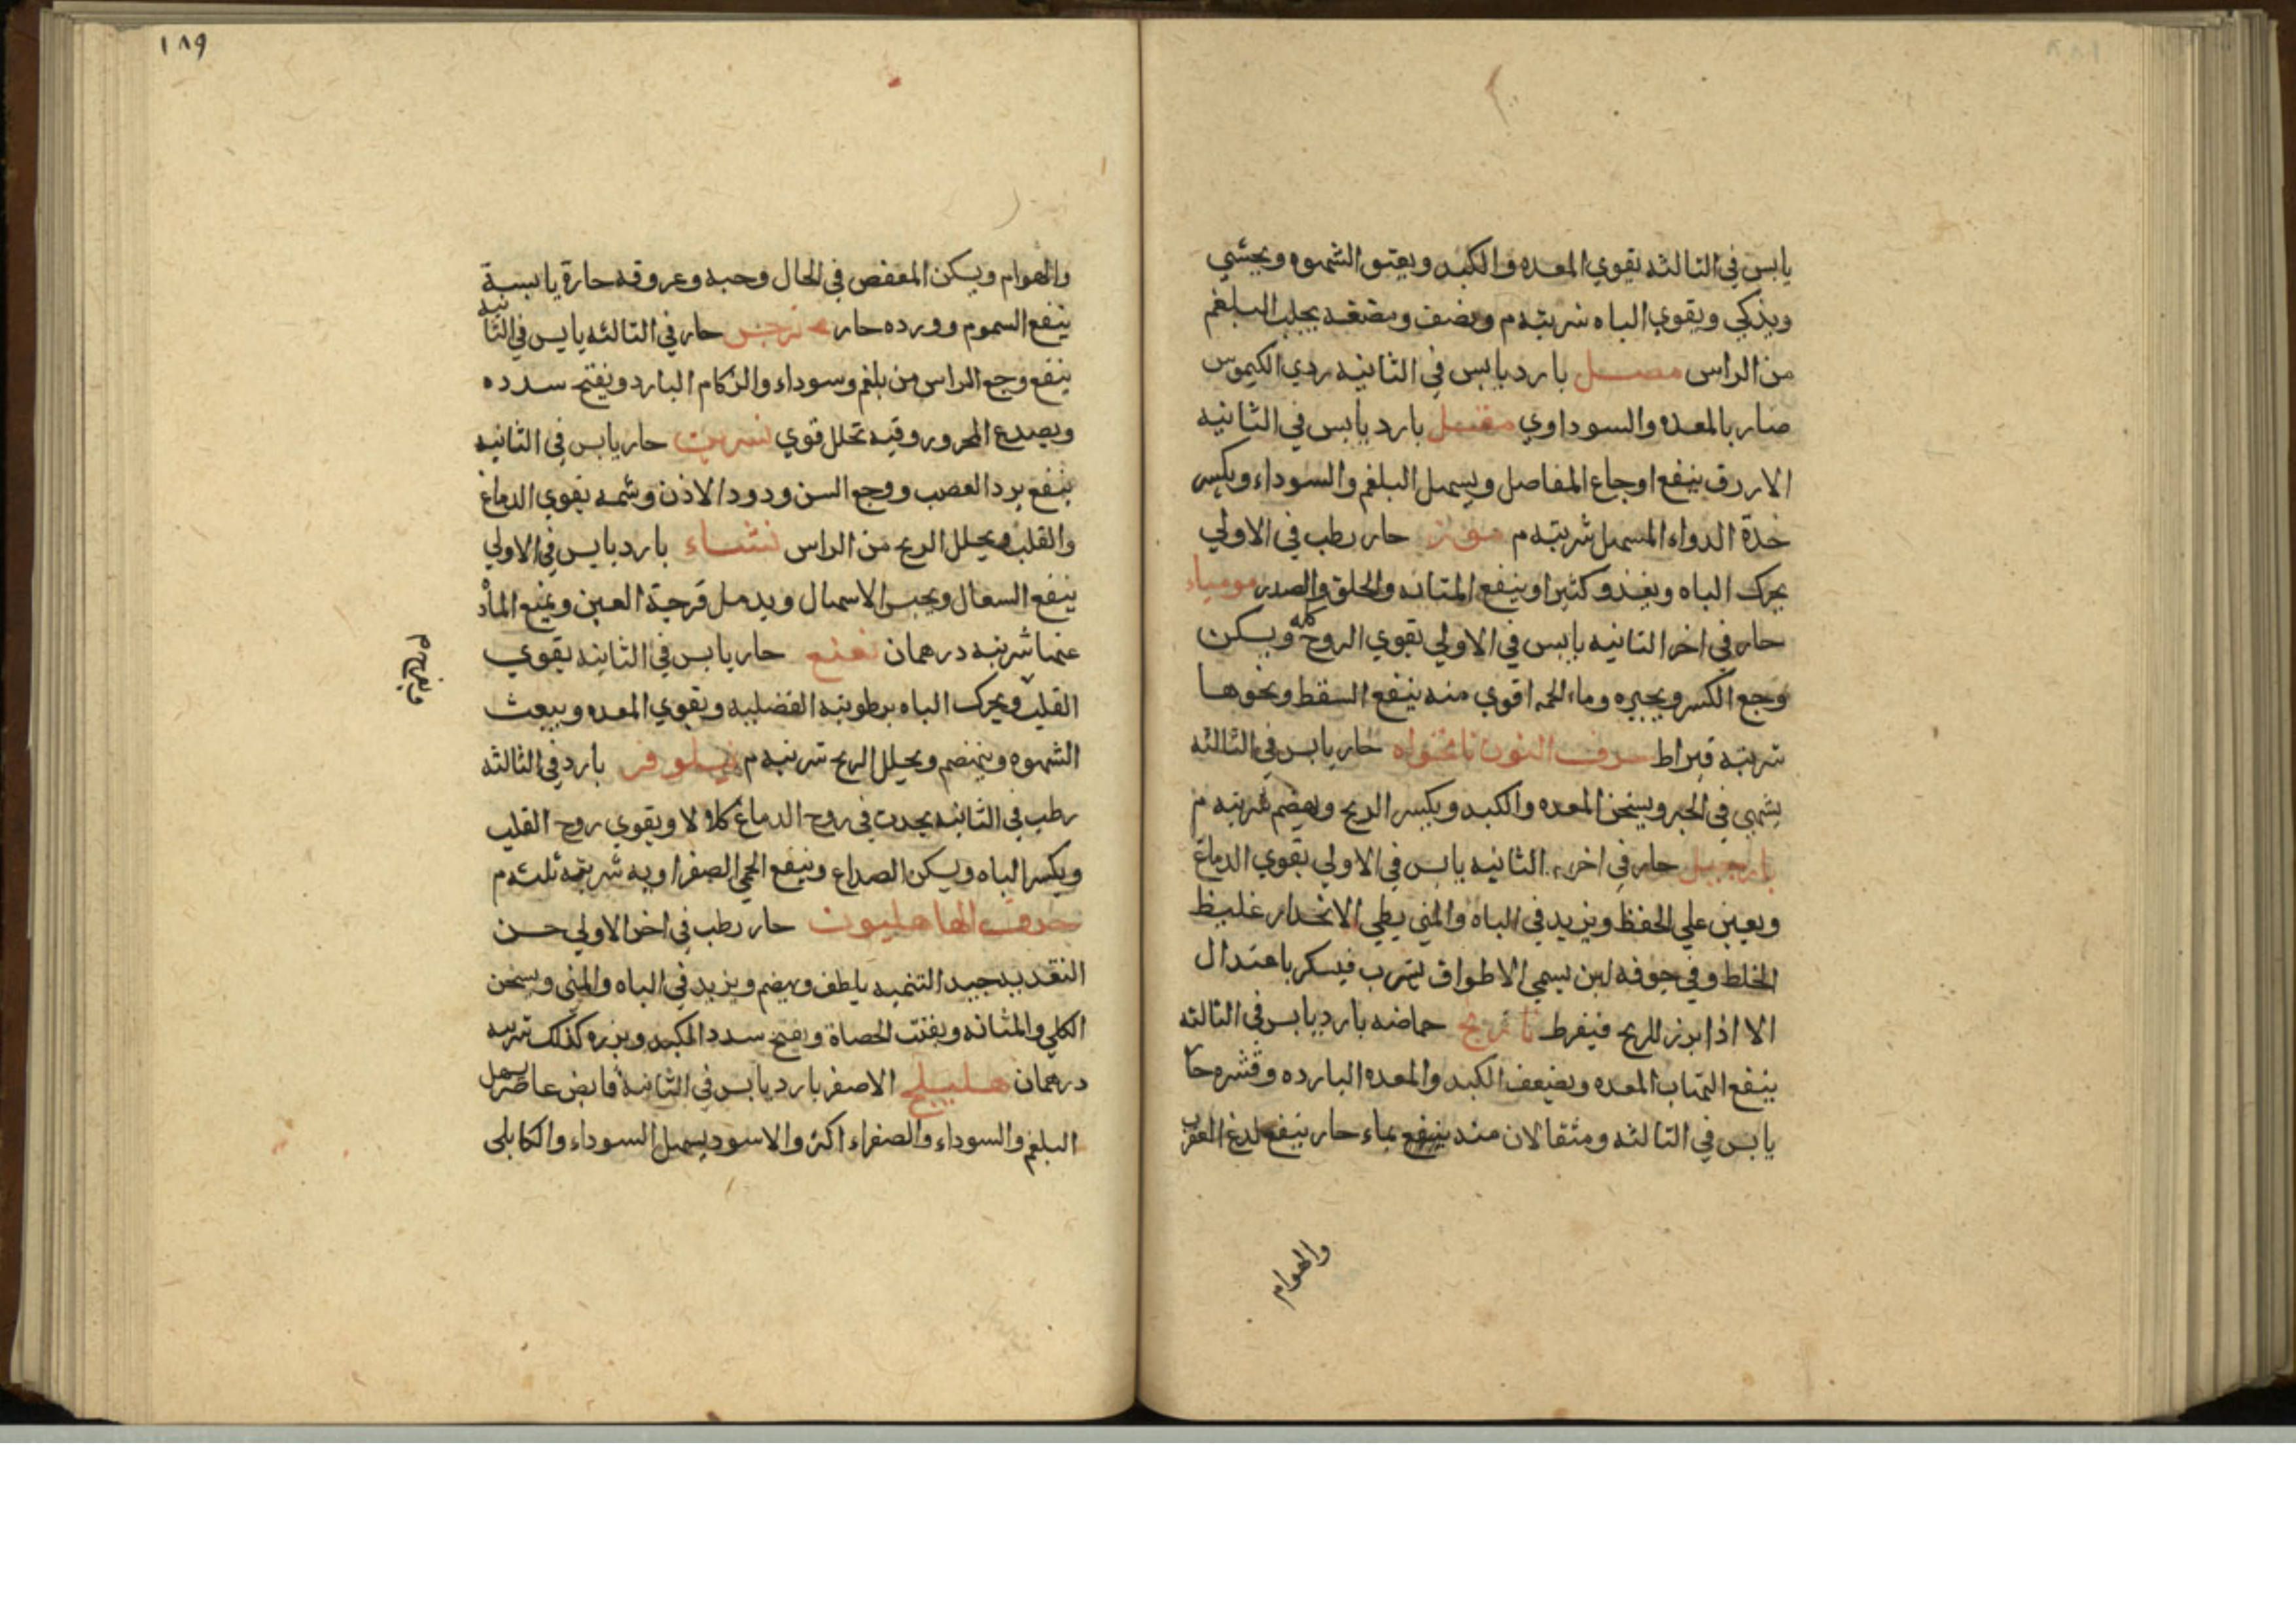 يابس في الثالثه يقوي المعده والكبد ويفتق الشهوه ويجشي
ويذكي ويقوي الباه شربته م ونصف ومضغه يجلب البلغم
من الراس مصل بارد يابس في الثانيه ردي الكيموس
ضار بالمعده والسوداوي مقل بارد يابس في الثانيه
الازرق ينفع اوجاع المفاصل ويسهل البلغم والسوداء ويكسر
حدة الدواء المسهل شربته م موز حار رطب في الاولي
يحرك الباه ويغذو كثيرا وينفع المثانه والحلق والصدر مومياء
حار في اخر الثانيه يابس في الاولي يقوي الروح كله ويسكن
وجع الكسر ويجبره وماء لحمه اقوي منه ينفع السقط ونحوها
شربته قيراط حرف النون نانخواه حار يابس في الثالثه
يشهي في الخبز ويسخن المعده والكبد ويكسر الريح ويهضم شربته م
نارجيل حار في اخر الثانيه يابس في الاولي يقوي الدماغ
ويعين علي الحفظ ويزيد في الباه والمني بطي الانحدار غليظ
الخلط وفي جوفه لبن يسمي الاطواق يشرب فيسكر باعتدال
الا اذا برز للريح فيفرط نارنج حماضه بارد يابس في الثالثه
ينفع التهاب المعده ويضعف الكبد والمعده البارده وقشره حار
يابس في الثالثه ومثقالان منه بماء حار ينفع لدغ العقرب
والهوام
١٨٩
والهوام ويسكن المغص في الحال وحبه وعروقه حارة يابسة
ينفع السموم وورده حار نرجس حار في الثالثه يابس في الثانيه
ينفع وجع الراس من بلغم وسوداء والزكام البارد ويفتح سدده
ويصدع المحرور وفيه تحلل قوي نسرين حار يابس في الثانيه
ينفع برد العصب ووجع السن ودود الاذن وشمه يقوي الدماغ
والقلب ويحلل الريح من الراس نشاء بارد يابس في الاولي
ينفع السعال ويحبس الاسهال ويدمل قرحة العين ويمنع المواد
عنها شربته درهمان نعنع حار يابس في الثانيه يقوي
القلب ويحرك الباه برطوبته الفضليه ويقوي المعده ويبعث
الشهوه ويهضم ويحلل الريح شربته م نيلوفر بارد في الثالثه
رطب في الثانيه يحدث في روح الدماغ كلالا ويقوي روح القلب
ويكسر الباه ويسكن الصداع وينفع الحمي الصفراويه شربته ثلثه م
حرف الها هليون حار رطب في اخر الاولي حسن
التغذيه جيد التنميه يلطف ويهضم ويزيد في الباه والمني ويسخن
الكلي والمثانه ويفتت الحصاة ويفتح سدد الكبد وبزره كذلك شربته
درهمان هليلج الاصفر بارد يابس في الثانيه قابض عاصر يسهل
البلغم والسوداء والصفراء اكثر والاسود يسهل السوداء والكابلي